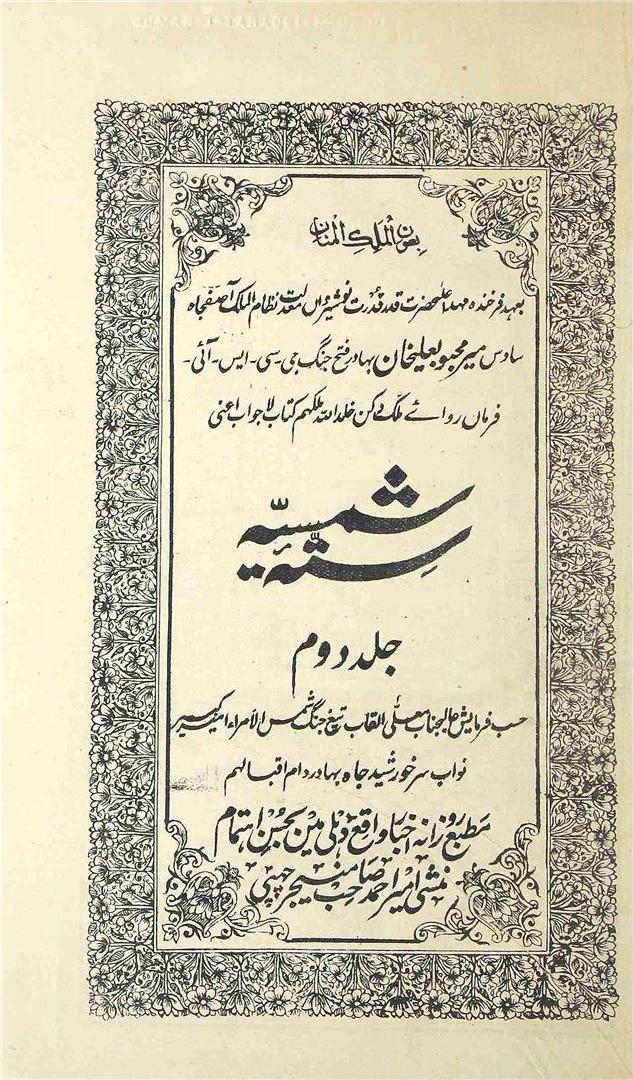 بعون الملک المنان
بعہد فرخندہ مہد اعلیٰحضرت قدر قدرت نوشیرواں معدلت نظام الملک آصفجاہ
سادس میر محبوبعلیخان بہادر فتح جنگ جی ۔ سی ۔ ایس ۔ آئی ۔
فرماں روائے ملک دکن خلد اللہ ملکہم کتاب لاجواب اعنی
ستہ شمسیہ
جلد دوم
حسب فرمایش عالیجناب معلی القاب تیغ جنگ شمس الامراء امیر کبیر
نواب سر خورشید جاہ بہادر دام اقبالہم
مطبع روزانہ اخبار واقع دہلی میں بحسن اہتمام
منشی امیر احمد صاحب منیجر چھپی